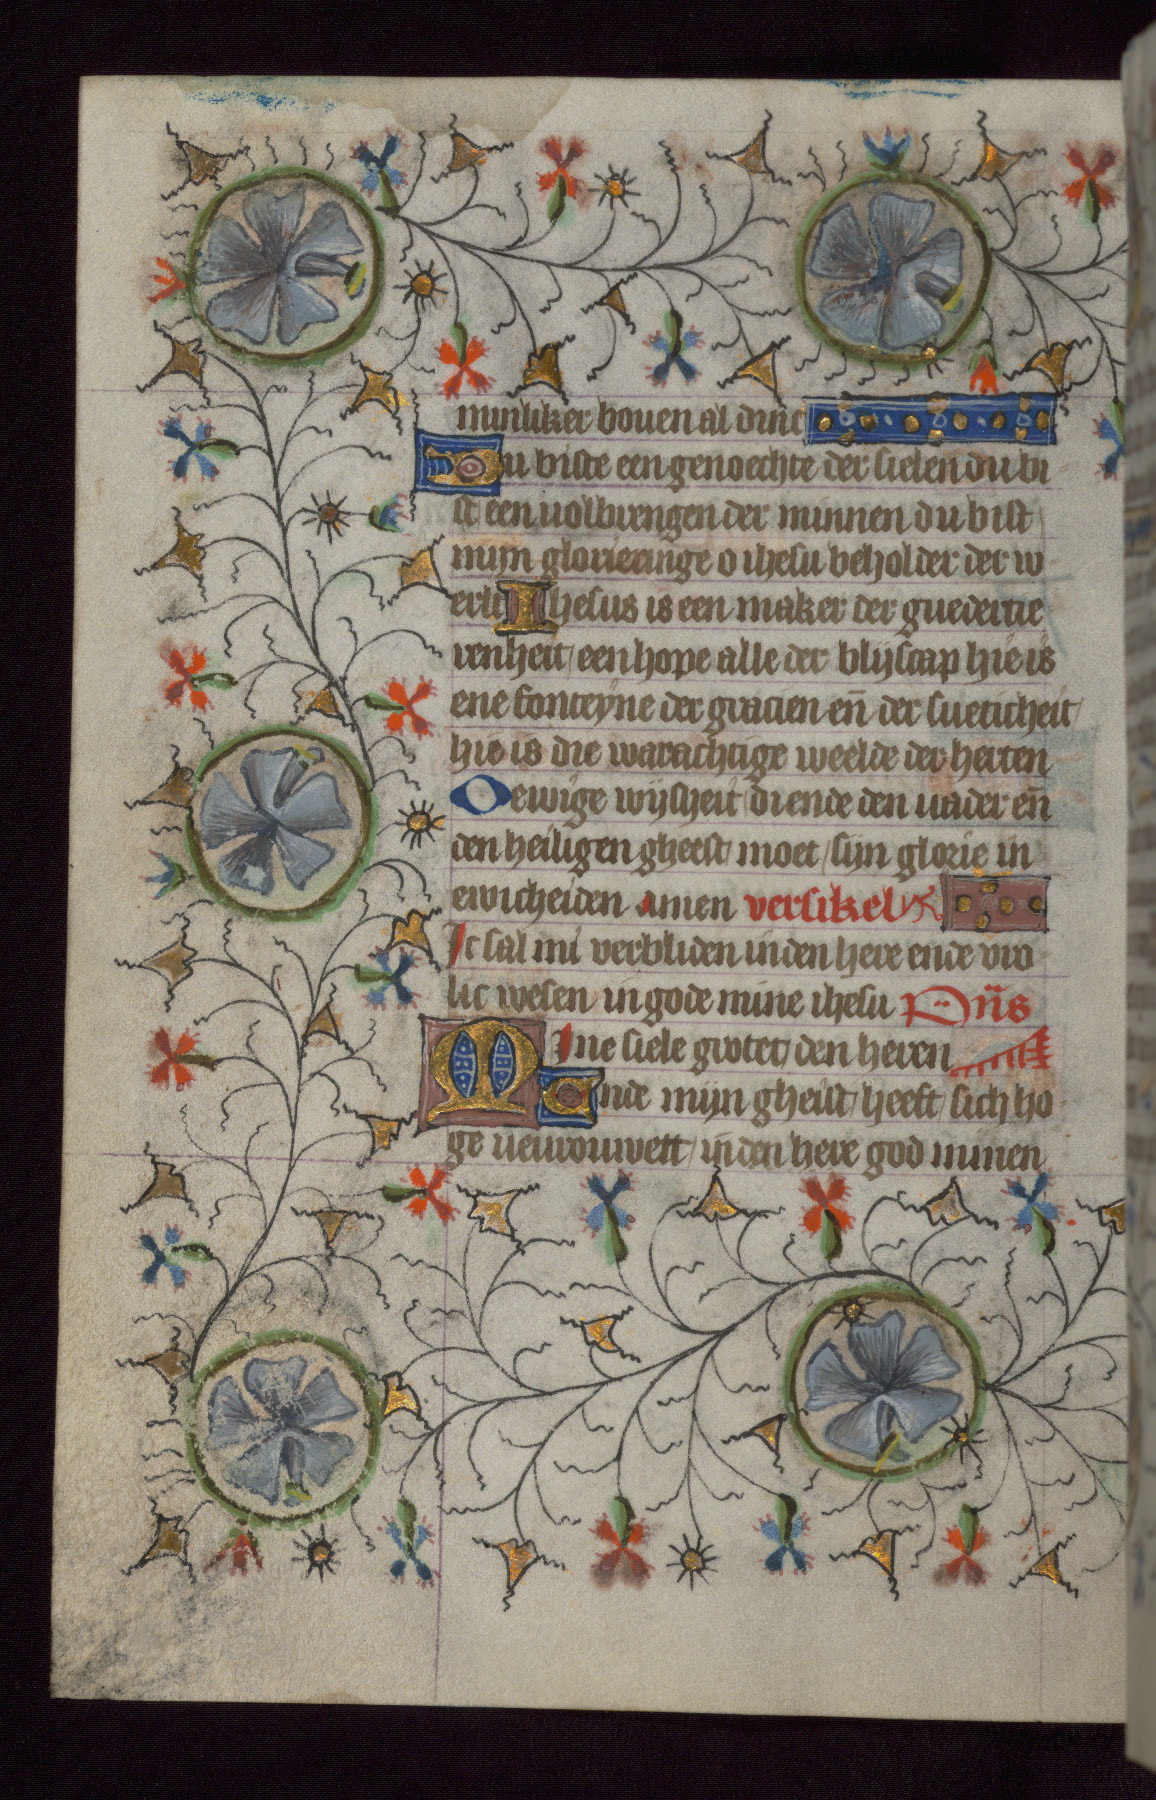 minliker bouen al dinc
Du biste een genoechte der sielen du bi
st een uolbrengen der minnen du bist
mijn glorieringe o ihesu beholder der w
erlt Ihesus is een maker der guedertie
renheit een hope alle der blijscap hie is
ene fonteyne der gracien en̄ der sueticheit
hie is die warachtige weelde der herten
O ewige wijsheit diende den uader en̄
den heiligen gheest moet sijn glorie in
ewicheiden amen versikel
Ic sal mi verbliden in den here ende vro
lic wesen in gode mine ihesu
Mine siele grotet den heren
Ende mijn gheist heeft sich ho
ge ueurouwett in den here god minen